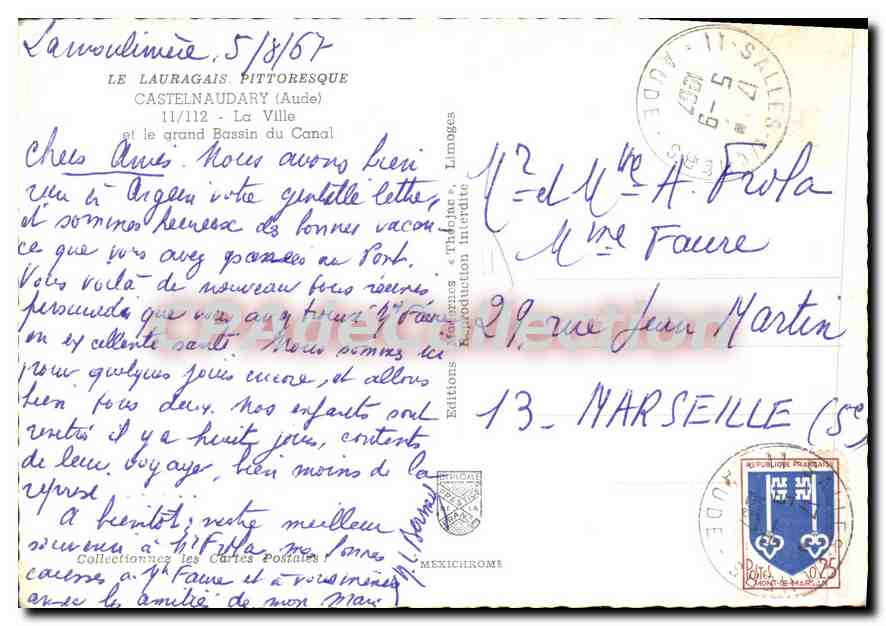 Lamoulinière, 5/8/67
LE LAURAGAIS PITTORESQUE
CASTELNAUDARY (Aude)
11/112 - La Ville
et le grand Bassin du Canal
Chers Amis. Nous avons bien
reçu à votre gentille lettre,
et sommes heureux des bonnes vacan-
ce que vous avez passées au Port.
Vous voilà de nouveau tous réunis
persuadés que vous avez trouvé Mme Faure
en excellente santé. Nous sommes ici
pour quelques jours encore, et allons
bien tous deux. Nos enfants sont
rentrés il y a huit jours, contents
de leur voyage, bien moins de la
reprise
A bientôt; notre meilleur
souvenir à Mr Frola, mes bonnes
caresses à Mme Faure et à vous même
avec les amitiés de mon Mari
Collectionnez les Cartes Postales !
MEXICHROME
Editions Modernes « Théojac », Limoges
Reproduction interdite
Mr et Mme A. Frola
Mme Faure
29, rue Jean Martin
13 - MARSEILLE (5e)
11 - SALLES
17 H
5 - 9
1967
AUDE
REPUBLIQUE FRANÇAISE
Postes 0,25
MONT-DE-MARSAN
CPA de Collection